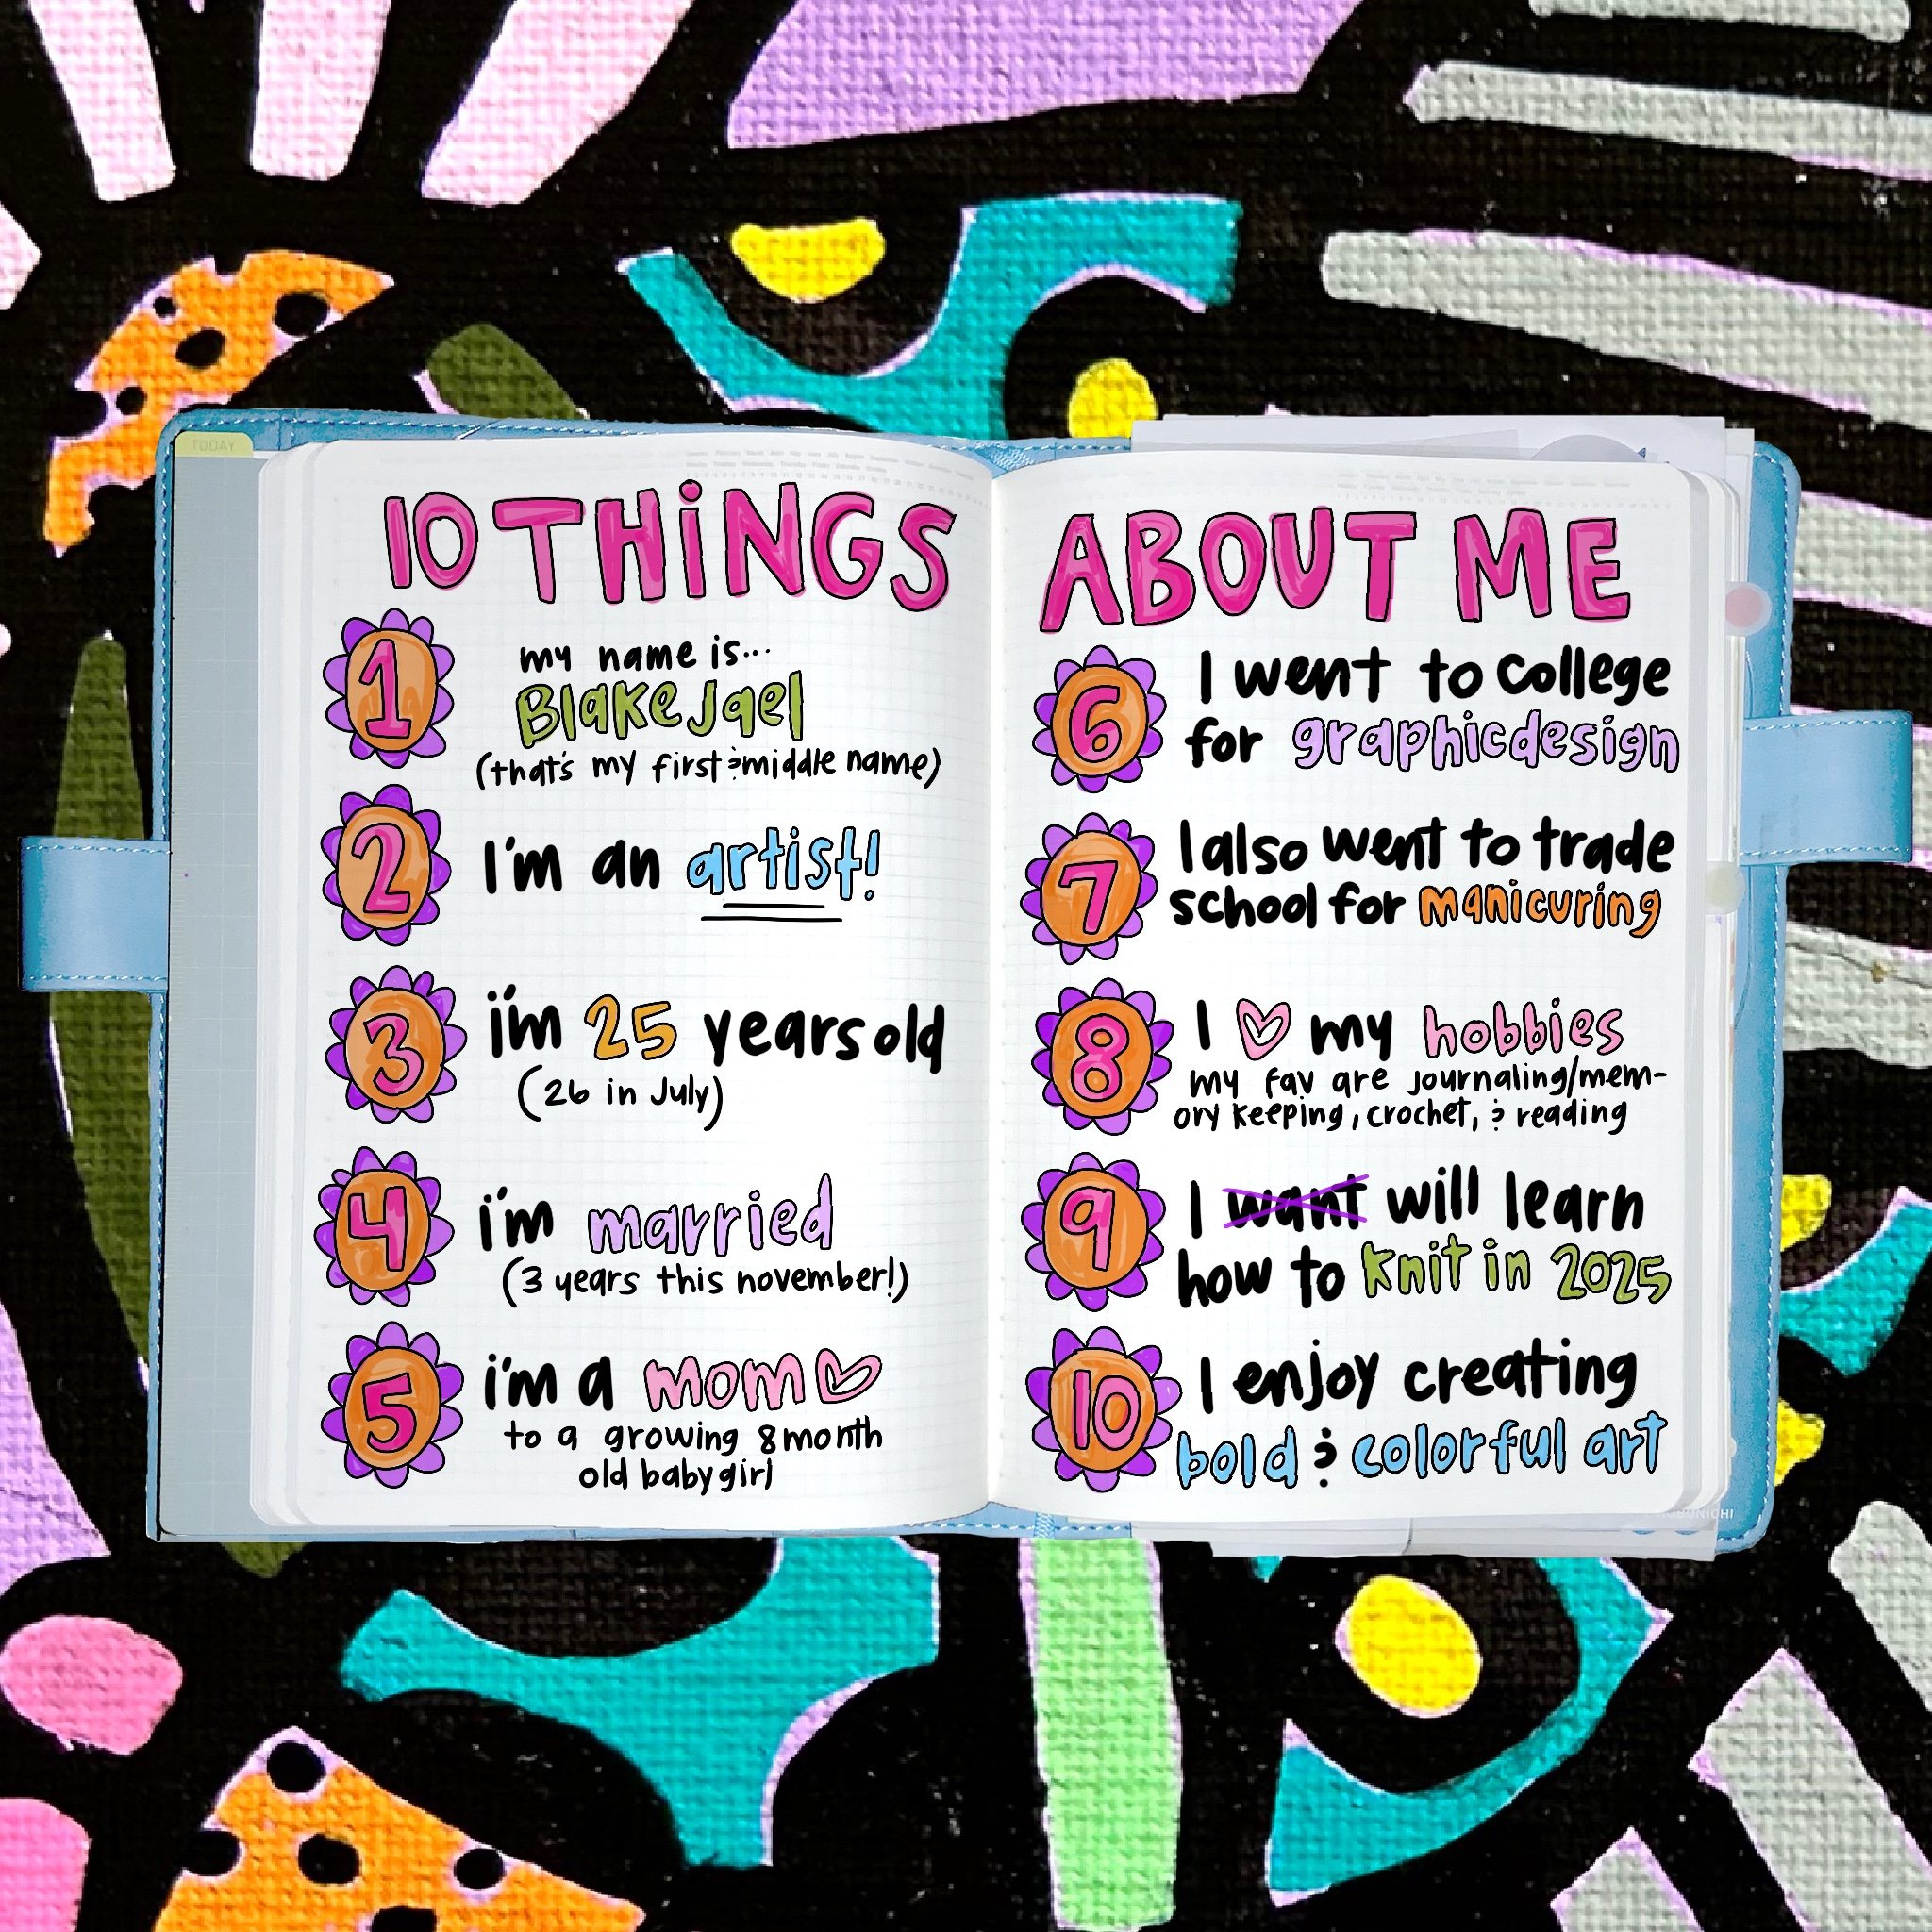 TODAY
10 THiNGS
1
my name is...
Blake Jael
(that's my first & middle name)
2
I'm an artist!
3
i'm 25 years old
(26 in July)
4
i'm married
(3 years this november!)
5
i'm a mom ♡
to a growing 8 month
old baby girl
ABOUT ME
6
I went to college
for graphic design
7
I also went to trade
school for manicuring
8
I ♡ my hobbies
my fav are journaling/mem-
ory keeping, crochet, & reading
9
I want will learn
how to knit in 2025
10
I enjoy creating
bold & colorful art